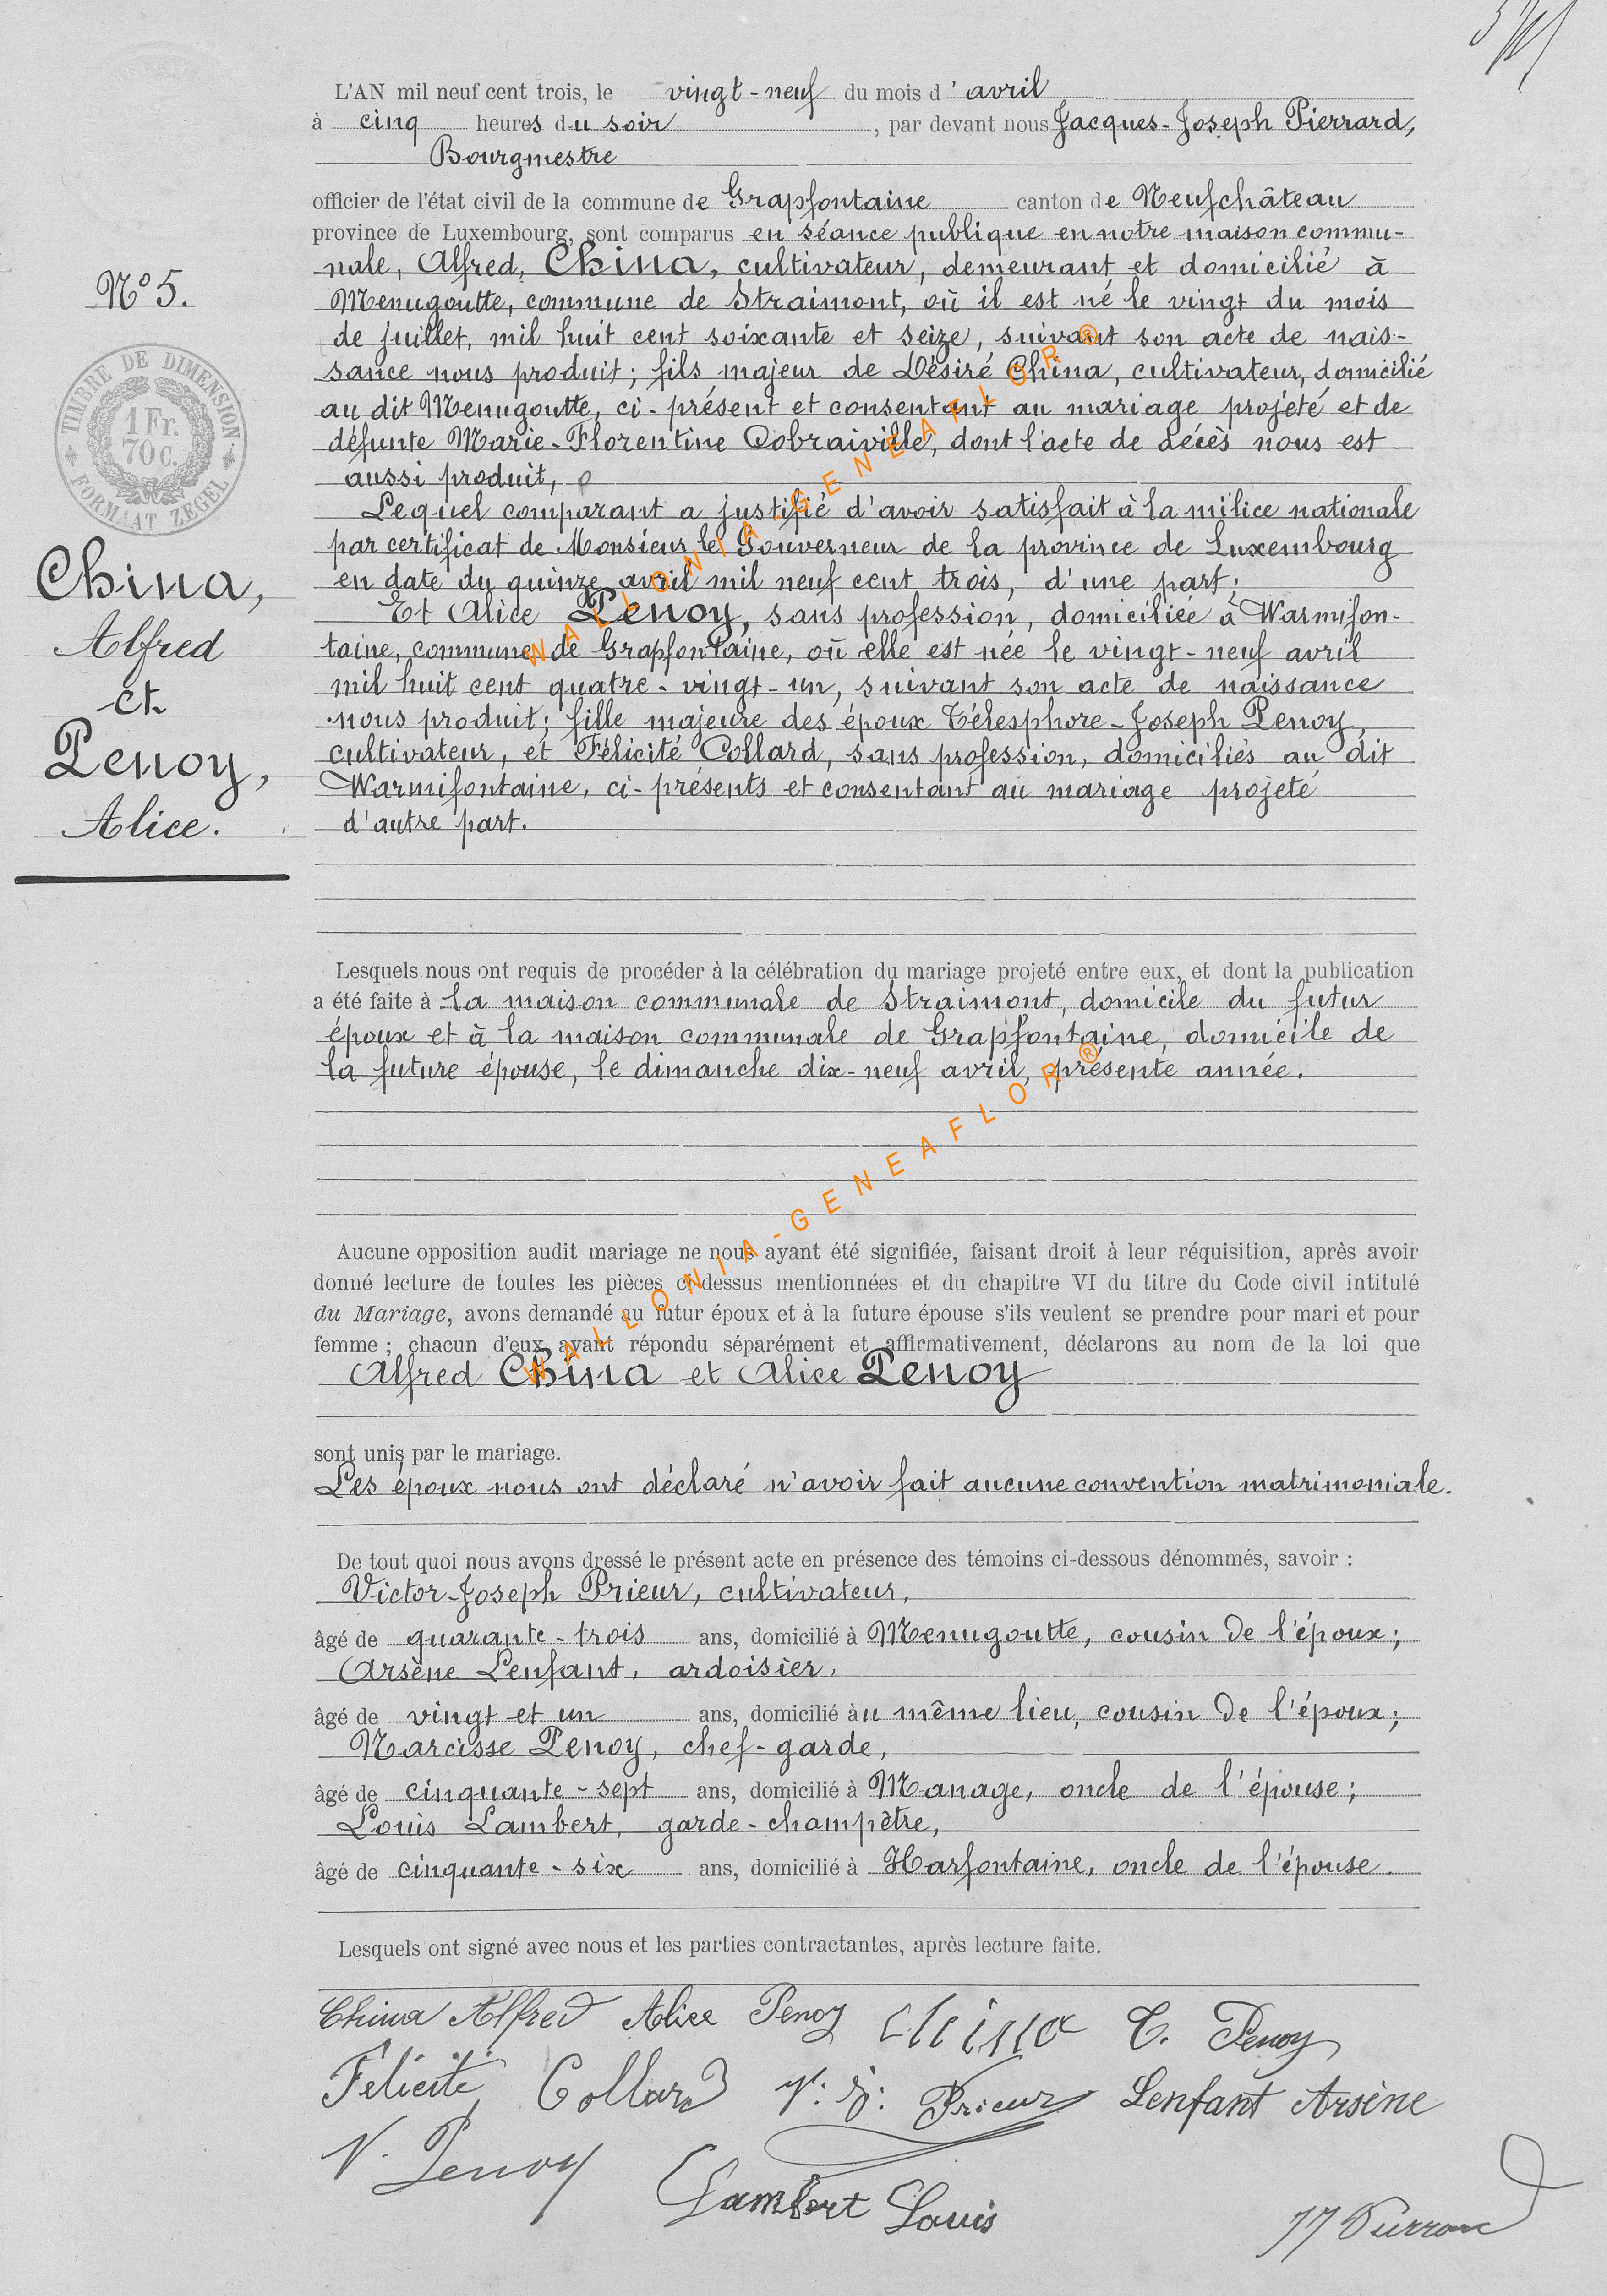 L'AN mil neuf cent trois, le vingt-neuf du mois d'avril
à cinq heures du soir, par devant nous Jacques-Joseph Pierrard,
Bourgmestre
officier de l'état civil de la commune de Grapfontaine canton de Neufchâteau
province de Luxembourg, sont comparus en séance publique en notre maison commu-
nale, Alfred, China, cultivateur, demeurant et domicilié à
Menugoutte, commune de Straimont, où il est né le vingt du mois
de juillet, mil huit cent soixante et seize, suivant son acte de nais-
sance nous produit; fils majeur de Désiré China, cultivateur, domicilié
au dit Menugoutte, ci-présent et consentant au mariage projeté et de
défunte Marie-Florentine Dobraiville, dont l'acte de décès nous est
aussi produit,
Lequel comparant a justifié d'avoir satisfait à la milice nationale
par certificat de Monsieur le Gouverneur de la province de Luxembourg
en date du quinze avril mil neuf cent trois, d'une part;
Et Alice Penoy, sans profession, domiciliée à Warmifon-
taine, commune de Grapfontaine, où elle est née le vingt-neuf avril
mil huit cent quatre-vingt-un, suivant son acte de naissance
nous produit; fille majeure des époux Télesphore-Joseph Penoy,
cultivateur, et Félicité Collard, sans profession, domiciliés au dit
Warmifontaine, ci-présents et consentant au mariage projeté
d'autre part.
N° 5.
TIMBRE DE DIMENSION
1 Fr.
70 c.
FORMAAT ZEGEL
China,
Alfred
et
Penoy,
Alice.
Lesquels nous ont requis de procéder à la célébration du mariage projeté entre eux, et dont la publication
a été faite à la maison communale de Straimont, domicile du futur
époux et à la maison communale de Grapfontaine, domicile de
la future épouse, le dimanche dix-neuf avril, présente année.
Aucune opposition audit mariage ne nous ayant été signifiée, faisant droit à leur réquisition, après avoir
donné lecture de toutes les pièces ci-dessus mentionnées et du chapitre VI du titre du Code civil intitulé
du Mariage, avons demandé au futur époux et à la future épouse s'ils veulent se prendre pour mari et pour
femme ; chacun d'eux ayant répondu séparément et affirmativement, déclarons au nom de la loi que
Alfred China et Alice Penoy
sont unis par le mariage.
Les époux nous ont déclaré n'avoir fait aucune convention matrimoniale.
De tout quoi nous avons dressé le présent acte en présence des témoins ci-dessous dénommés, savoir :
Victor-Joseph Prieur, cultivateur,
âgé de quarante-trois ans, domicilié à Menugoutte, cousin de l'époux;
Arsène Lenfant, ardoisier,
âgé de vingt et un ans, domicilié au même lieu, cousin de l'époux;
Narcisse Penoy, chef-garde,
âgé de cinquante-sept ans, domicilié à Manage, oncle de l'épouse;
Louis Lambert, garde-champêtre,
âgé de cinquante-six ans, domicilié à Harfontaine, oncle de l'épouse.
Lesquels ont signé avec nous et les parties contractantes, après lecture faite.
China Alfred Alice Penoy China T. Penoy
Félicité Collard V. J. Prieur Lenfant Arsène
N. Penoy Lambert Louis JJ Pierrard
WALLONIA-GENEAFLOR®
WALLONIA-GENEAFLOR®